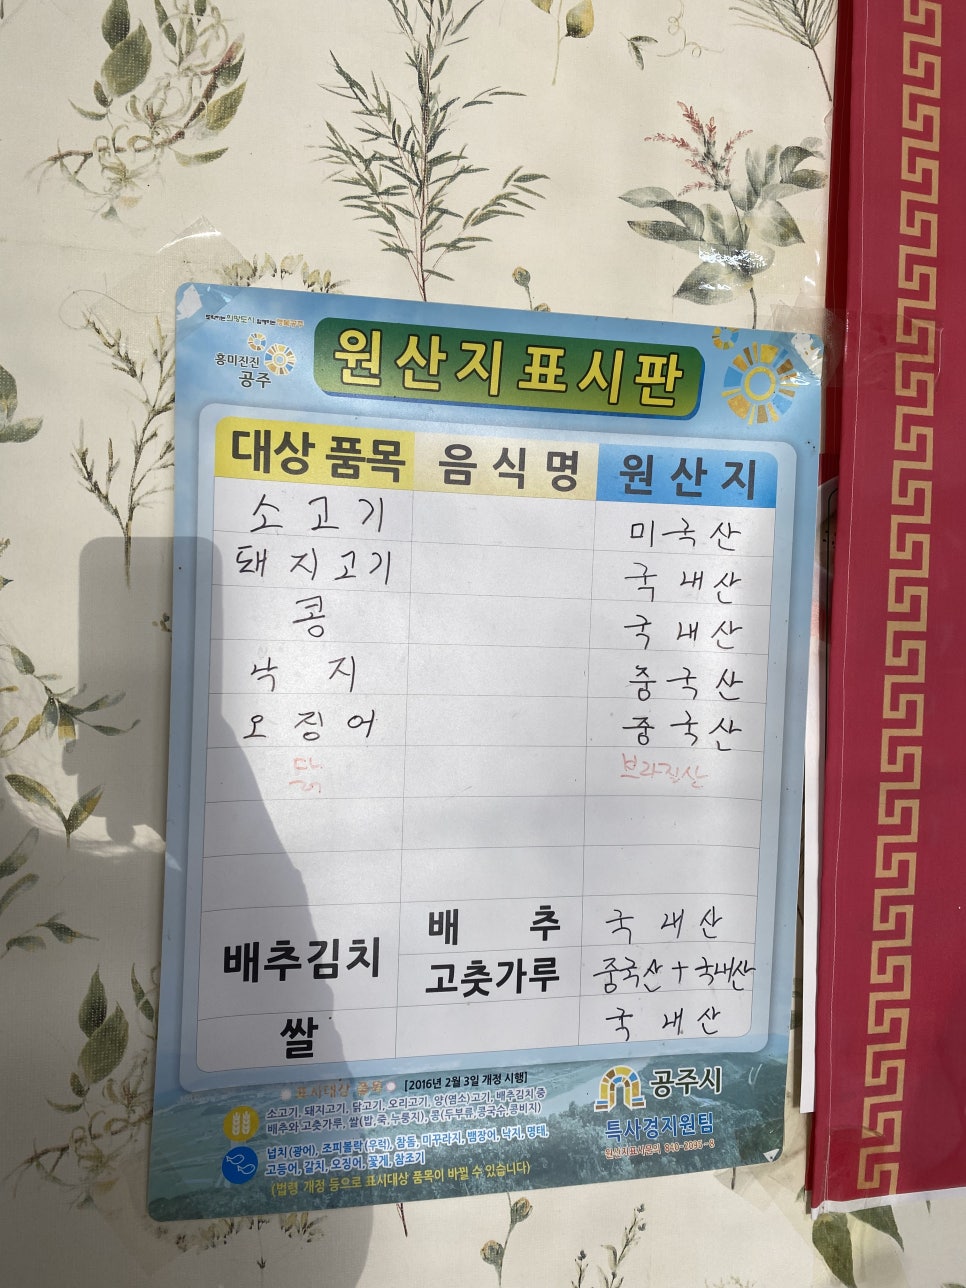 흥미진진
공주
원산지표시판
대상 품목 음식명 원산지
소고기 미국산
돼지고기 국내산
콩 국내산
낙지 중국산
오징어 중국산
닭 브라질산
배추김치 배추 국내산
고춧가루 중국산+국내산
쌀 국내산
표시대상 품목 [2016년 2월 3일 개정 시행]
소고기, 돼지고기, 닭고기, 오리고기, 양(염소)고기, 배추김치 중
배추와 고춧가루, 쌀(밥, 죽, 누룽지), 콩(두부류, 콩국수, 콩비지)
넙치(광어), 조피볼락(우럭), 참돔, 미꾸라지, 뱀장어, 낙지, 명태,
고등어, 갈치, 오징어, 꽃게, 참조기
(법령 개정 등으로 표시대상 품목이 바뀔 수 있습니다)
공주시
특사경지원팀
원산지표시문의 840-2095~8